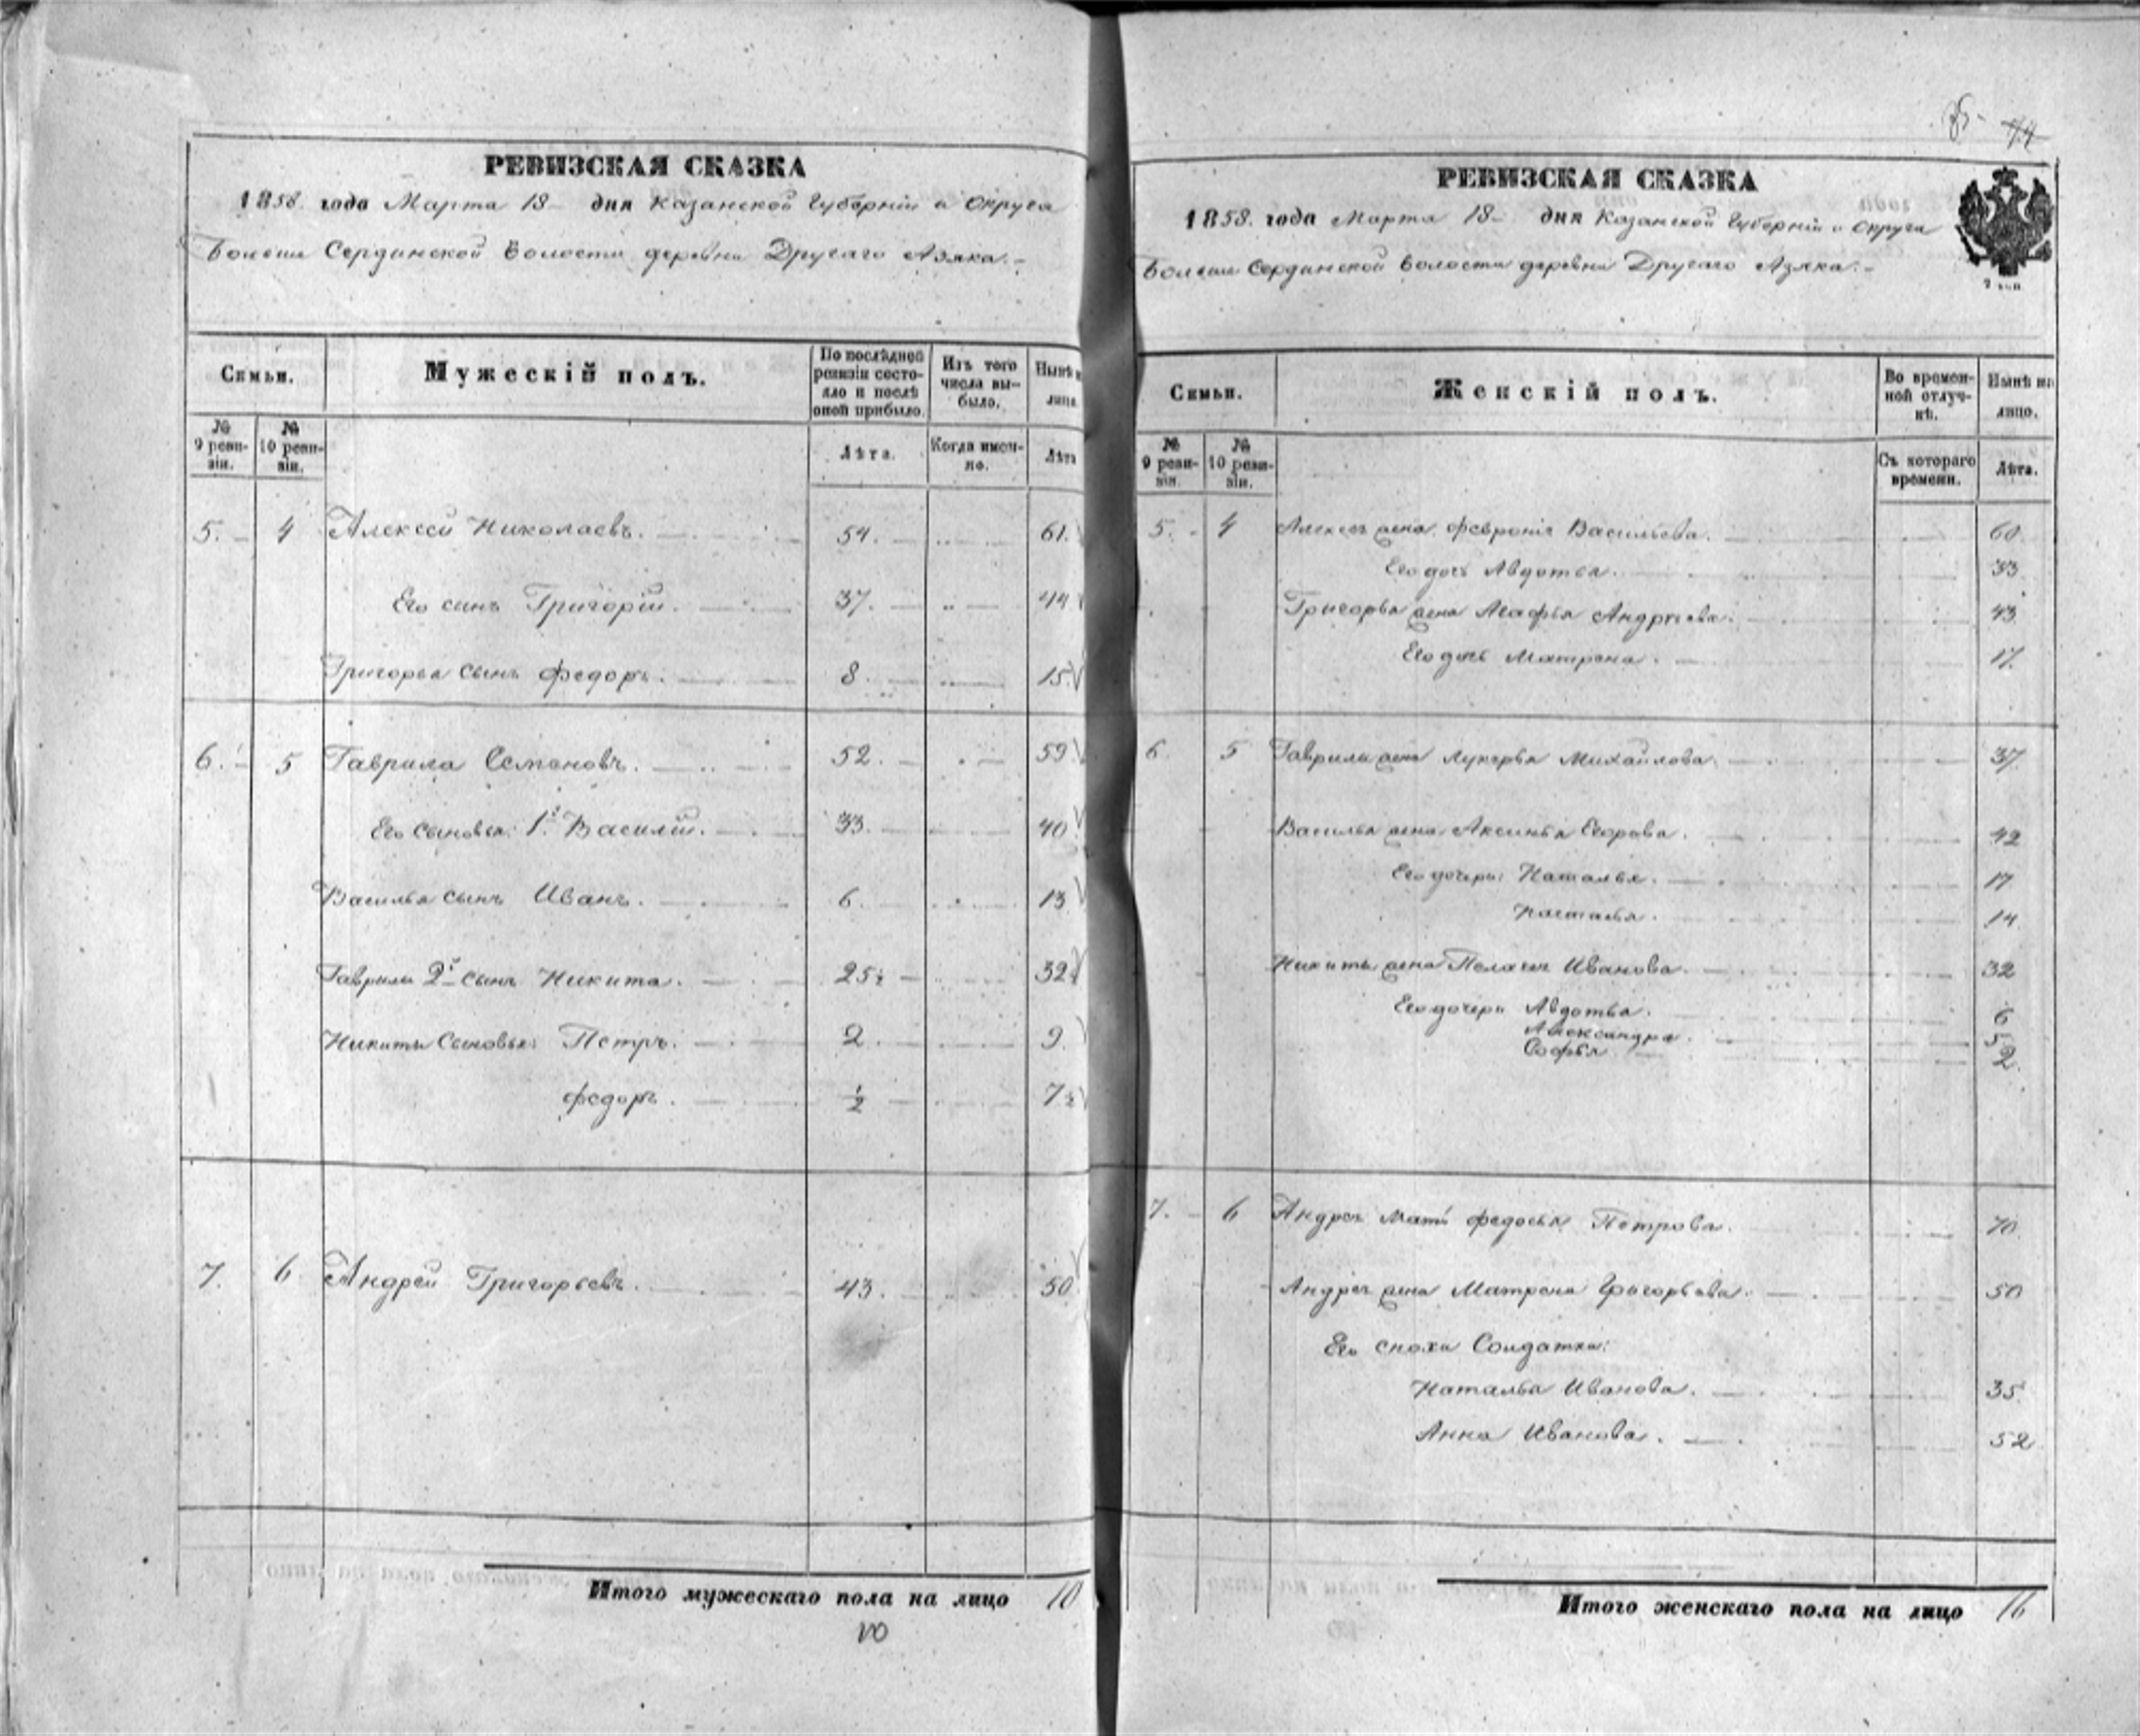 РЕВИЗСКАЯ СКАЗКА
1858. года Марта 13 дня Казанской Губерніи и Округа
Больше Сердинской волости деревни Другаго Азяка.
Семьи.
Мужескій полъ.
По послѣдней ревизіи состояло и послѣ оной прибыло.
Изъ того числа выбыло.
Нынѣ
лицо
№ 9 ревизіи.
№ 10 ревизіи.
Лѣта.
Когда именно.
Лѣта
5. 4 Алексей Николаевъ. 54. 61.
Его сынъ Григорій. 37. 44
Григорья сынъ Федоръ. 8. 15
6. 5 Гаврила Семеновъ. 52. 59
Его сыновья: 1й Василій. 33. 40
Василья сынъ Иванъ. 6. 13
Гаврилы 2й сынъ Никита. 25½ 32½
Никиты сыновья: Петръ. 2. 9.
Федоръ. ½ 7½
7. 6 Андрей Григорьевъ. 43. 50
Итого мужескаго пола на лицо 10
10
74
РЕВИЗСКАЯ СКАЗКА
1858. года Марта 13 дня Казанской Губерніи и Округа
Больше Сердинской волости деревни Другаго Азяка.
Семьи.
Женскій полъ.
Во временной отлучкѣ.
Нынѣ на лицо.
№ 9 ревизіи.
№ 10 ревизіи.
Съ котораго времени.
Лѣта.
5. 4 Алексея жена Февронія Васильева. 60.
Его дочь Авдотья. 33
Григорья жена Агафья Андреева. 43
Его дочь Матрена. 17.
6. 5 Гаврилы жена Лукерья Михайлова. 37.
Василья жена Аксинья Егорова. 42
Его дочери: Наталья. 17
Настасья. 14
Никиты жена Пелагея Иванова. 32
Его дочери Авдотья. 6
Александра. 5
Софья 2.
7. 6 Андрея мать Федосья Петрова. 70.
Андрея жена Матрена Григорьева. 50
Его снохи Солдатки:
Наталья Иванова. 35
Анна Иванова. 52
Итого женскаго пола на лицо 16